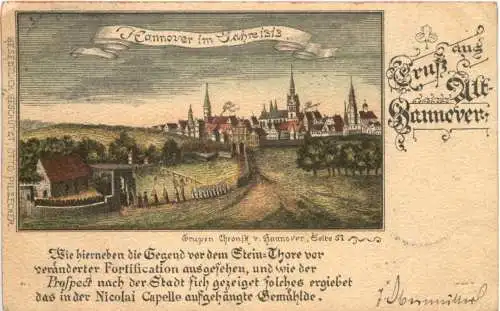 Hannover im Jahre 1313
Gruß aus
Alt-
Hannover.
GESETZLICH GESCHÜTZT. OTTO PILSECKER.
Grupen Chronik v. Hannover, Seite 51
Wie hierneben die Gegend vor dem Stein-Thore vor
veränderter Fortification ausgesehen, und wie der
Prospect nach der Stadt sich gezeiget solches ergiebet
das in der Nicolai Capelle aufgehängte Gemählde.